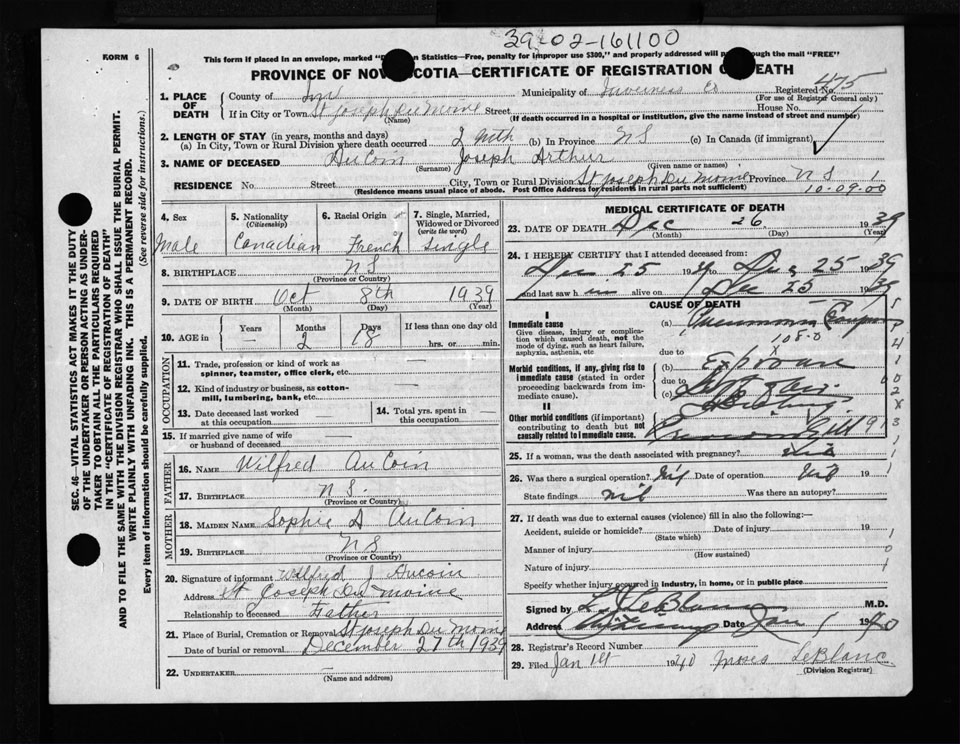 39-02-161100
FORM 6
This form if placed in an envelope, marked "D Statistics—Free, penalty for improper use $300," and properly addressed will through the mail "FREE"
PROVINCE OF NOV SCOTIA—CERTIFICATE OF REGISTRATION OF DEATH
1. PLACE OF DEATH County of Inv Municipality of Inverness Co Registered No. 475
(For use of Registrar General only)
If in City or Town St Joseph Du Moine Street House No.
(Name) (If death occurred in a hospital or institution, give the name instead of street and number)
2. LENGTH OF STAY (in years, months and days)
(a) In City, Town or Rural Division where death occurred 2 Mth (b) In Province NS (c) In Canada (if immigrant)
3. NAME OF DECEASED AuCoin Joseph Arthur
(Surname) (Given name or names)
RESIDENCE No. Street City, Town or Rural Division St Joseph Du Moine Province NS 1
(Residence means usual place of abode. Post Office Address for residents in rural parts not sufficient) 10-09-00
4. Sex Male
5. Nationality (Citizenship) Canadian
6. Racial Origin French
7. Single, Married, Widowed or Divorced (write the word) Single
8. BIRTHPLACE NS
(Province or Country)
9. DATE OF BIRTH Oct 8th 1939
(Month) (Day) (Year)
10. AGE in Years — Months 2 Days 18 If less than one day old
hrs. or min.
OCCUPATION
11. Trade, profession or kind of work as —
spinner, teamster, office clerk, etc.
12. Kind of industry or business, as cotton- —
mill, lumbering, bank, etc.
13. Date deceased last worked at this occupation —
14. Total yrs. spent in this occupation —
15. If married give name of wife or husband of deceased —
FATHER
16. NAME Wilfred AuCoin
17. BIRTHPLACE N.S.
(Province or Country)
MOTHER
18. MAIDEN NAME Sophie A AuCoin
19. BIRTHPLACE NS
(Province or Country)
20. Signature of informant Wilfred J Aucoin
Address St Joseph Du Moine
Relationship to deceased Father
21. Place of Burial, Cremation or Removal St Joseph Du Moine
Date of burial or removal December 27th 1939
22. UNDERTAKER —
(Name and address)
MEDICAL CERTIFICATE OF DEATH
23. DATE OF DEATH Dec 26 1939
(Month) (Day) (Year)
24. I HEREBY CERTIFY that I attended deceased from:
Dec 25 19 to Dec 25 1939
and last saw h im alive on Dec 25 1939
CAUSE OF DEATH
I
Immediate cause
Give disease, injury or complication which caused death, not the mode of dying, such as heart failure, asphyxia, asthenia, etc
(a) Pneumonia
108.0
due to
Morbid conditions, if any, giving rise to immediate cause (stated in order proceeding backwards from immediate cause).
(b) Exposure
due to
(c)
II
Other morbid conditions (if important) contributing to death but not causally related to immediate cause.
25. If a woman, was the death associated with pregnancy?
26. Was there a surgical operation? Nil Date of operation Nil 19
State findings nil Was there an autopsy?
27. If death was due to external causes (violence) fill in also the following:—
Accident, suicide or homicide? Date of injury 19
(State which)
Manner of injury
(How sustained)
Nature of injury
Specify whether injury occurred in industry, in home, or in public place
Signed by L. J. LeBlanc M.D.
Address Date Jan 1 1940
28. Registrar's Record Number
29. Filed Jan 1st 1940 Moses LeBlanc
(Division Registrar)
SEC. 46—VITAL STATISTICS ACT MAKES IT THE DUTY
OF THE UNDERTAKER OR PERSON ACTING AS UNDER-
TAKER TO OBTAIN ALL THE PARTICULARS REQUIRED
IN THE "CERTIFICATE OF REGISTRATION OF DEATH"
AND TO FILE THE SAME WITH THE DIVISION REGISTRAR WHO SHALL ISSUE THE BURIAL PERMIT.
WRITE PLAINLY WITH UNFADING INK. THIS IS A PERMANENT RECORD.
Every item of information should be carefully supplied. (See reverse side for instructions.)